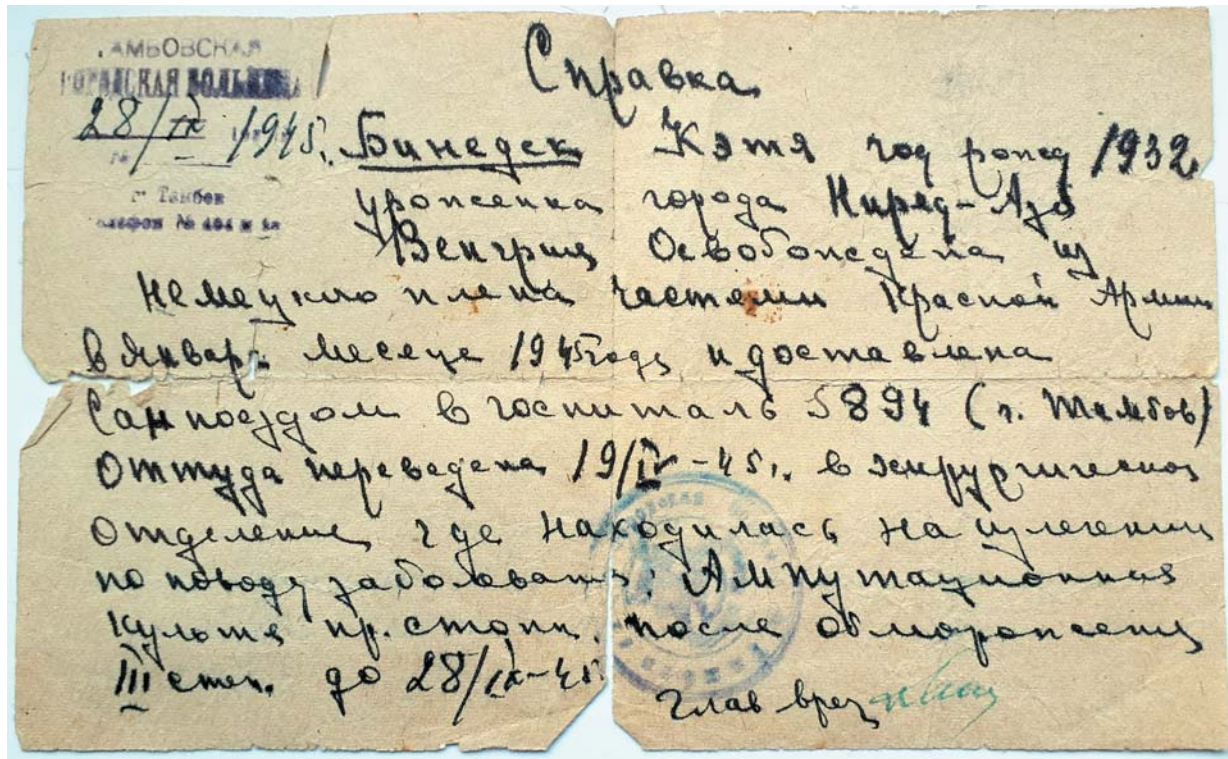 ТАМБОВСКАЯ
ГОРОДСКАЯ БОЛЬНИЦА
28/IX 1945.
№ -
г. Тамбов
Справка
Бинедек Кэтя год рожд 1932
уроженка города Ниред-Азо
Венгрия Освобождена из
немецкого плена частями Красной Армии
в январ. месеце 1945 году и доставлена
Санпоездом в госпиталь 5894 (г. Тамбов)
Оттуда переведена 19/IV-45г. в хирургическое
отделение где находилась на излечении
по поводу заболевания: Ампутационная
культя пр. стопы. после обморожения
III степ. до 28/IX-45
Глав врач